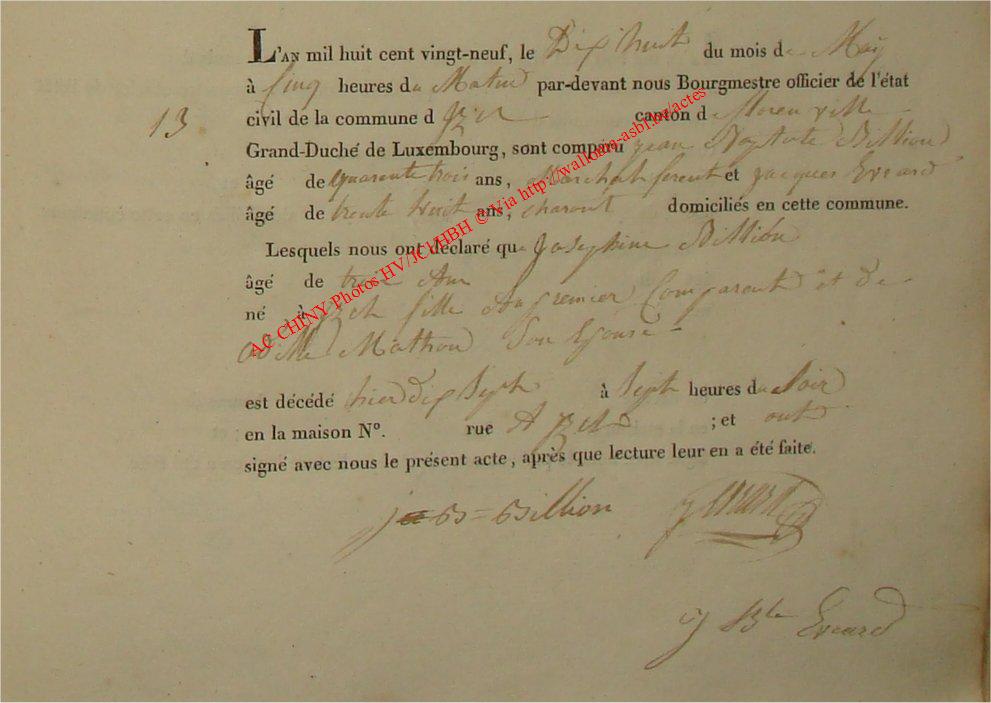 L'AN mil huit cent vingt-neuf, le Dix huit du mois de May
à Cinq heures du Matin par-devant nous Bourgmestre officier de l'état
13 civil de la commune d'Izel canton de florenville
Grand-Duché de Luxembourg, sont comparu jean Baptiste Billion
âgé de quarente trois ans, Marchal ferent et jacques Evrard
âgé de trente huit ans, domiciliés en cette commune.
Lesquels nous ont déclaré que Josephine Billion
âgé de trois Ans
né à izel fille du premier Comparent et de
Odille Mathon Son Epouse
est décédé hier dix Sept à Sept heures du Soir
en la maison N°. rue A izel ; et ont
signé avec nous le présent acte, après que lecture leur en a été faite.
j = B = Billion j Evrard
j Bte Evrard
AC CHINY Photos HV/JC1/HBH © Via http://wallonia-asbl.eu/actes